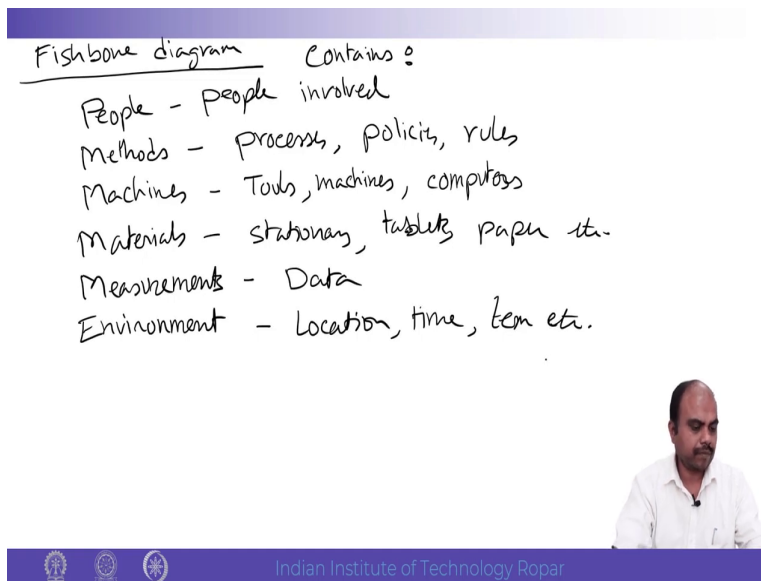 Fishbone diagram Contains:
People - people involved
Methods - processes, policies, rules
Machines - Tools, machines, computers
Materials - stationary, tablets, paper etc.
Measurements - Data
Environment - Location, time, tem etc.
Indian Institute of Technology Ropar